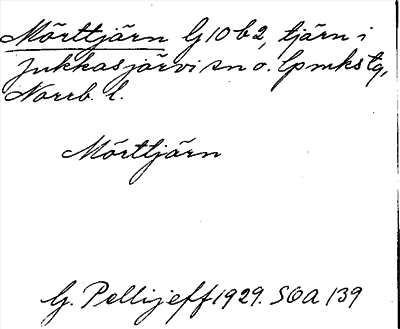 Mörttjärn G10b2, tjärn i
Jukkasjärvi sn o. lpmkstg,
Norrb. l.
Mörttjärn
G. Pellijeff 1929. SOA 139